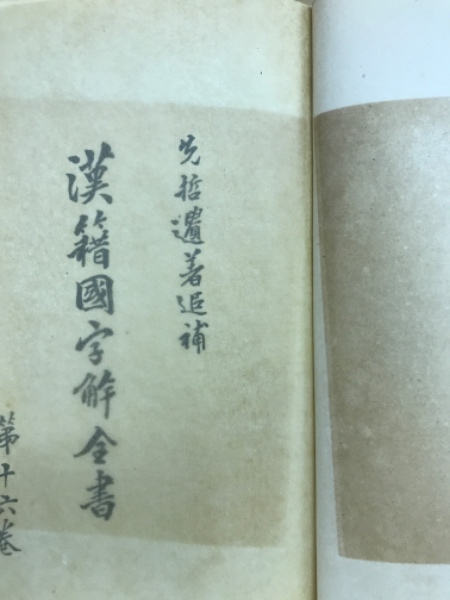 先哲遺著追補
漢籍國字解全書
第十六卷